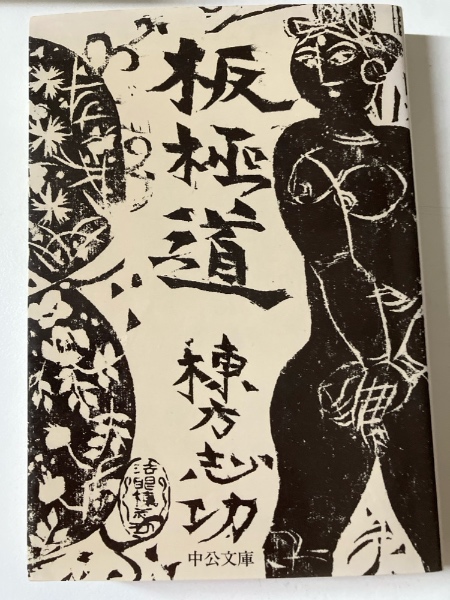 板極道
棟方志功
中公文庫